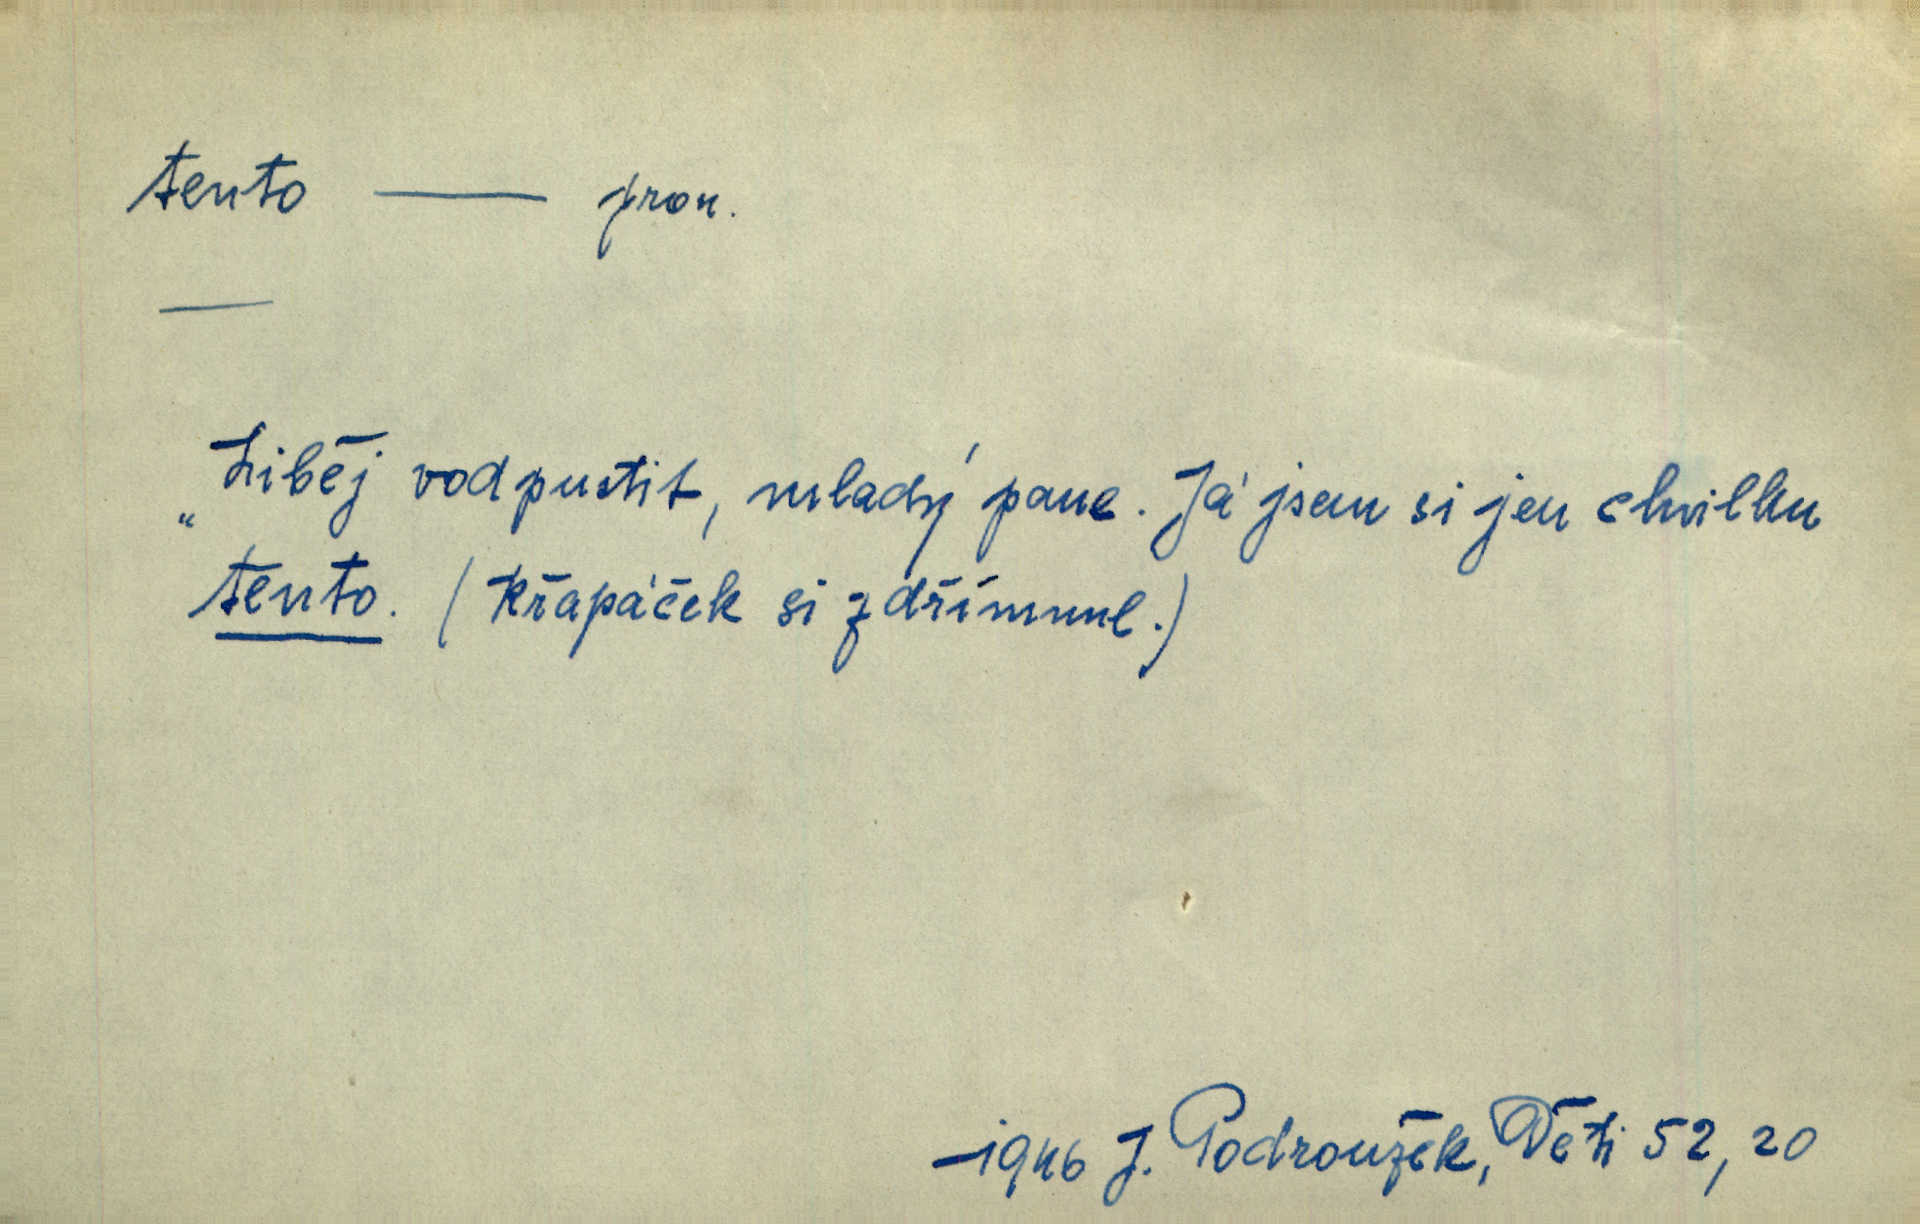 tento — pron.
—
„Liběj vodpustit, mladý pane. Já jsem si jen chvilku
tento. (Křapáček si zdřímnul.)
1946 J. Podroužek, Děti 52, 20